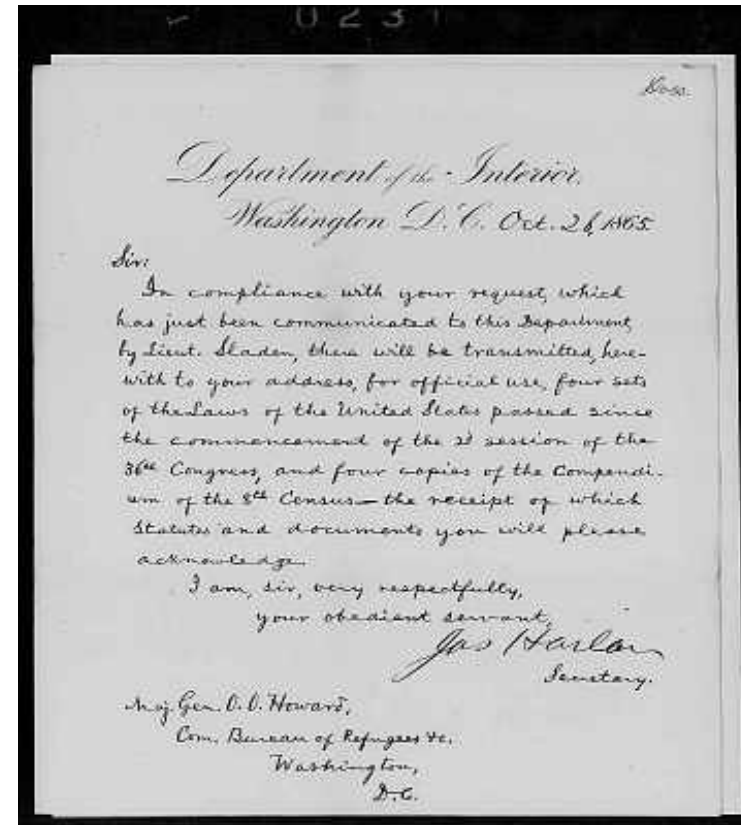 0231
Department of the Interior,
Washington D.C. Oct. 26, 1865
Sir:
In compliance with your request, which
has just been communicated to this Department,
by Lieut. Sladen, there will be transmitted, here-
with to your address, for official use, four sets
of the Laws of the United States passed since
the commencement of the 2d session of the
36th Congress, and four copies of the Compendi-
um of the 8th Census—the receipt of which
Statutes and documents you will please
acknowledge.
I am, sir, very respectfully,
your obedient servant,
Jas Harlan
Secretary.
Maj. Gen. O. O. Howard,
Com. Bureau of Refugees &c.
Washington,
D.C.